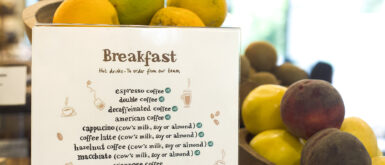 Breakfast
Hot drinks - To order from our team
espresso coffee
double coffee
decaffeinated coffee
american coffee
cappuccino (cow's milk, soy or almond)
coffee latte (cow's milk, soy or almond)
hazelnut coffee (cow's milk, soy or almond)
macchiato (cow's milk, soy or almond)
viennese coffee